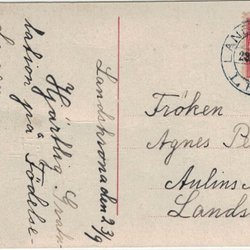 Landskrona den 23/9
Hjärtlig Gratu-
lation på
Födelse-
Fröken
Agnes
Aulins
Lands
LAN